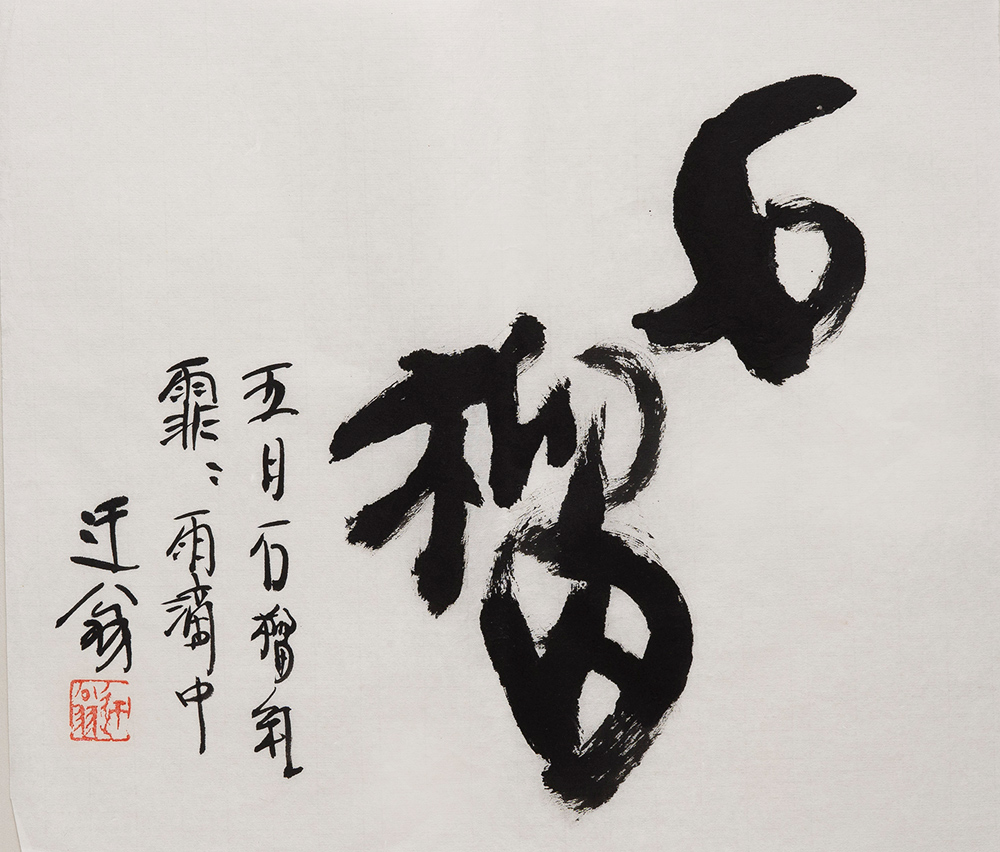 石榴
五月石榴紅
霏々雨滴中
迂翁
迂翁